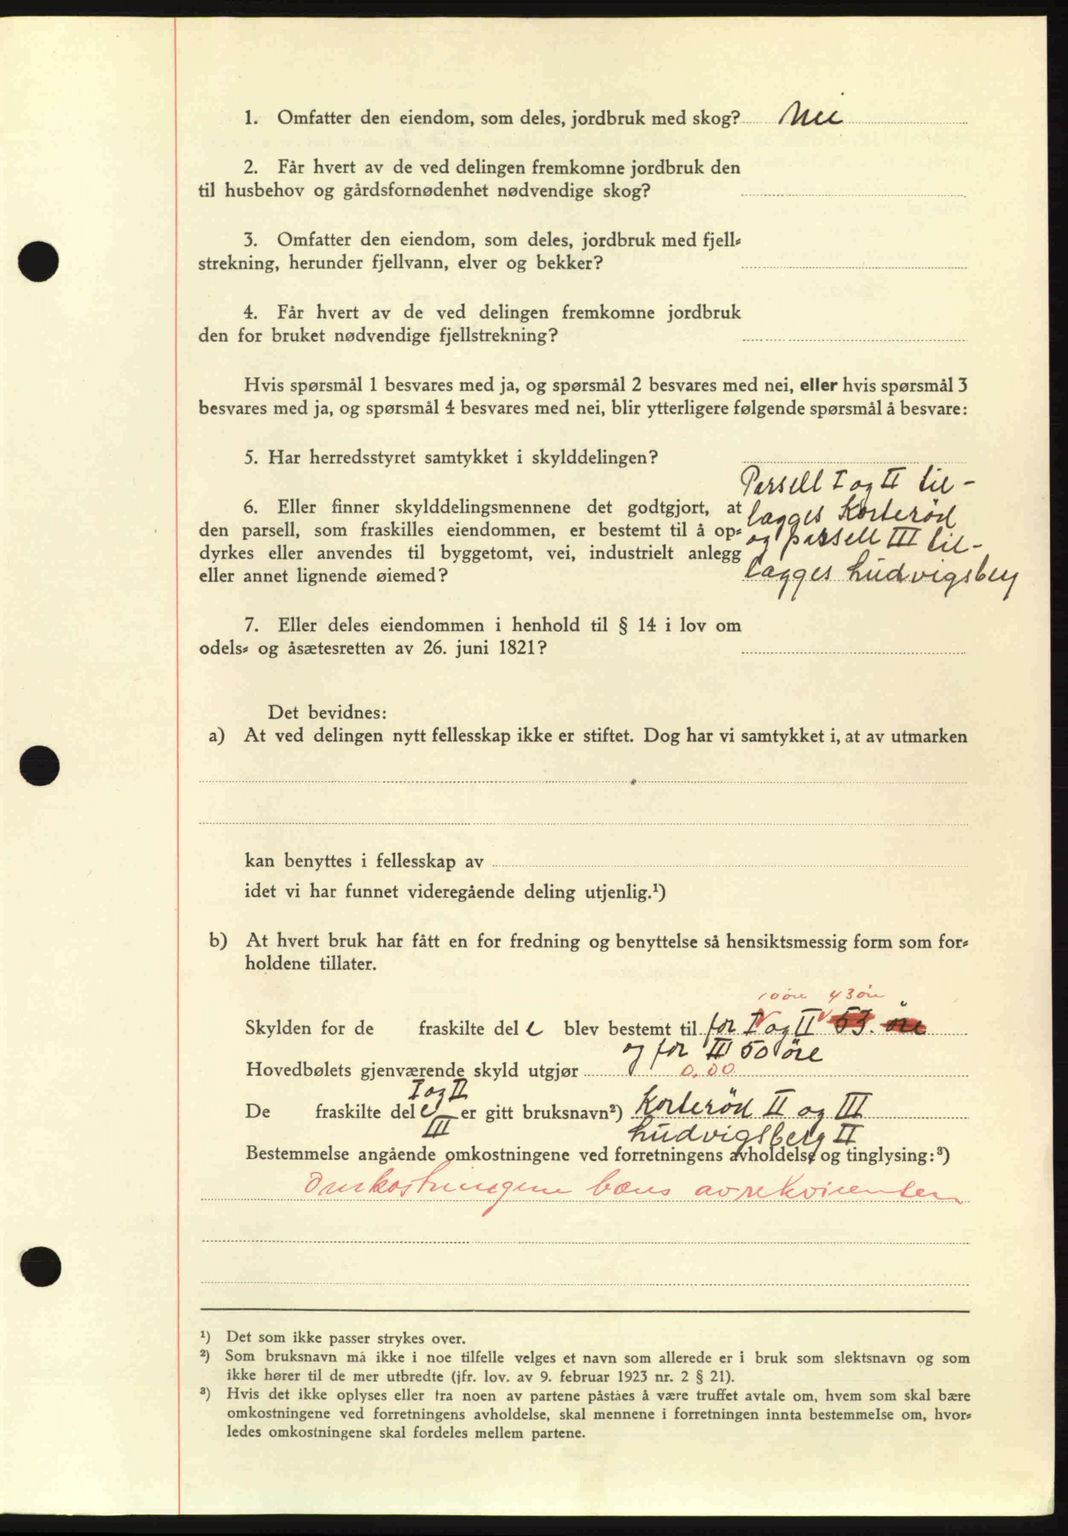 1. Omfatter den eiendom, som deles, jordbruk med skog? Nei
2. Får hvert av de ved delingen fremkomne jordbruk den
til husbehov og gårdsfornødenhet nødvendige skog?
3. Omfatter den eiendom, som deles, jordbruk med fjell-
strekning, herunder fjellvann, elver og bekker?
4. Får hvert av de ved delingen fremkomne jordbruk
den for bruket nødvendige fjellstrekning?
Hvis spørsmål 1 besvares med ja, og spørsmål 2 besvares med nei, eller hvis spørsmål 3
besvares med ja, og spørsmål 4 besvares med nei, blir ytterligere følgende spørsmål å besvare:
5. Har herredsstyret samtykket i skylddelingen?
6. Eller finner skylddelingsmennene det godtgjort, at
den parsell, som fraskilles eiendommen, er bestemt til å op-
dyrkes eller anvendes til byggetomt, vei, industrielt anlegg
eller annet lignende øiemed?
Parsell I og II til-
lagges Korterød
og parsell III til-
lagges Ludvigsberg
7. Eller deles eiendommen i henhold til § 14 i lov om
odels- og åsætesretten av 26. juni 1821?
Det bevidnes:
a) At ved delingen nytt fellesskap ikke er stiftet. Dog har vi samtykket i, at av utmarken
kan benyttes i fellesskap av
idet vi har funnet videregående deling utjenlig.¹)
b) At hvert bruk har fått en for fredning og benyttelse så hensiktsmessig form som for-
holdene tillater.
10 øre 43 øre
Skylden for de fraskilte del e blev bestemt til for I og II 53. øre
og for III 50 øre
Hovedbølets gjenværende skyld utgjør 0,00
I og II
De fraskilte del e er gitt bruksnavn²) Korterød II og III
III Ludvigsberg II
Bestemmelse angående omkostningene ved forretningens avholdelse og tinglysing:³)
Omkostningene bæres av rekvirenten
¹) Det som ikke passer strykes over.
²) Som bruksnavn må ikke i noe tilfelle velges et navn som allerede er i bruk som slektsnavn og som
ikke hører til de mer utbredte (jfr. lov. av 9. februar 1923 nr. 2 § 21).
³) Hvis det ikke oplyses eller fra noen av partene påståes å være truffet avtale om, hvem som skal bære
omkostningene ved forretningens avholdelse, skal mennene i forretningen innta bestemmelse om, hvor-
ledes omkostningene skal fordeles mellem partene.